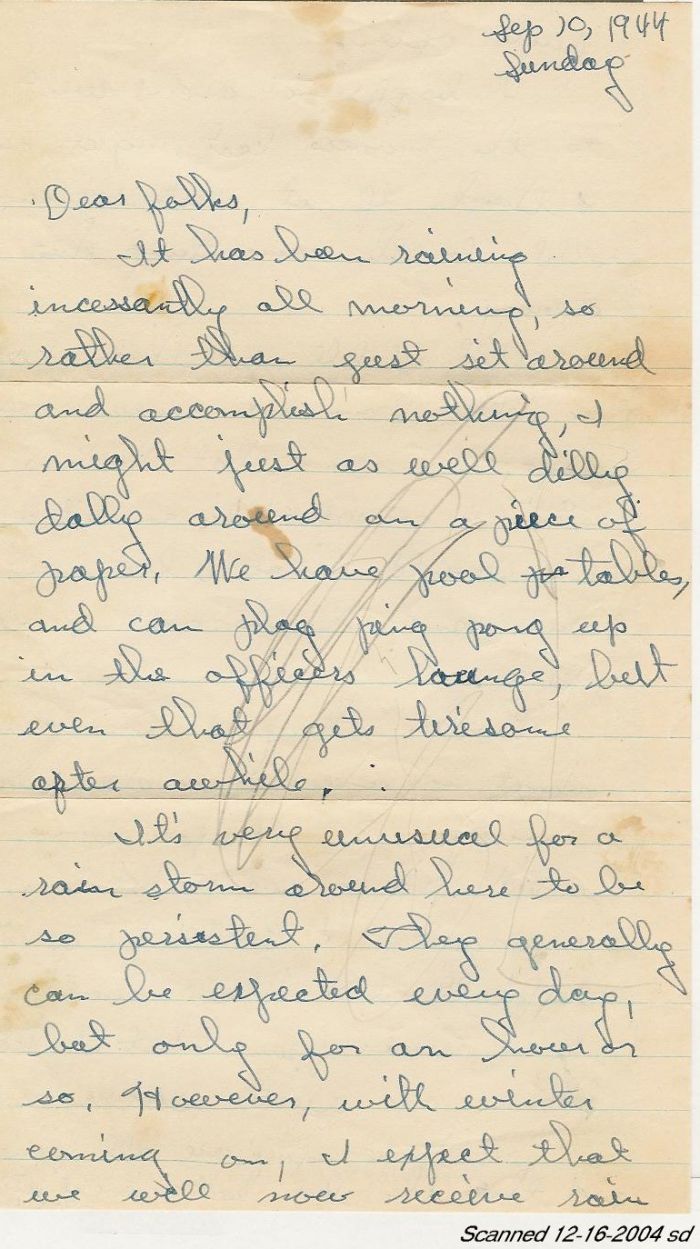 Sep 10, 1944
Sunday
Dear folks,
It has been raining
incessantly all morning, so
rather than just sit around
and accomplish nothing, I
might just as well dilly
dally around on a piece of
paper. We have pool tables,
and can play ping pong up
in the officers lounge, but
even that gets tiresome
after awhile.
It's very unusual for a
rain storm around here to be
so persistent. They generally
can be expected every day,
but only for an hour or
so. However, with winter
coming on, I expect that
we will now receive rain
Scanned 12-16-2004 sd